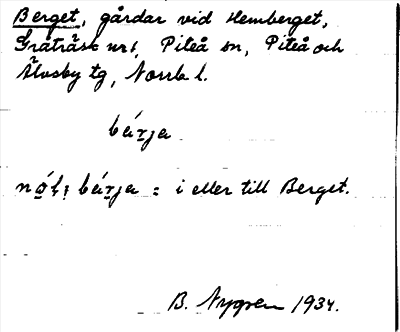 Berget, gårdar vid Hemberget,
Gråträsk nr 1, Piteå sn, Piteå och
Älvsby tg, Norrb l.
bárja
nǫ́ḷ: bárja = i eller till Berget.
B. Nygren 1934.